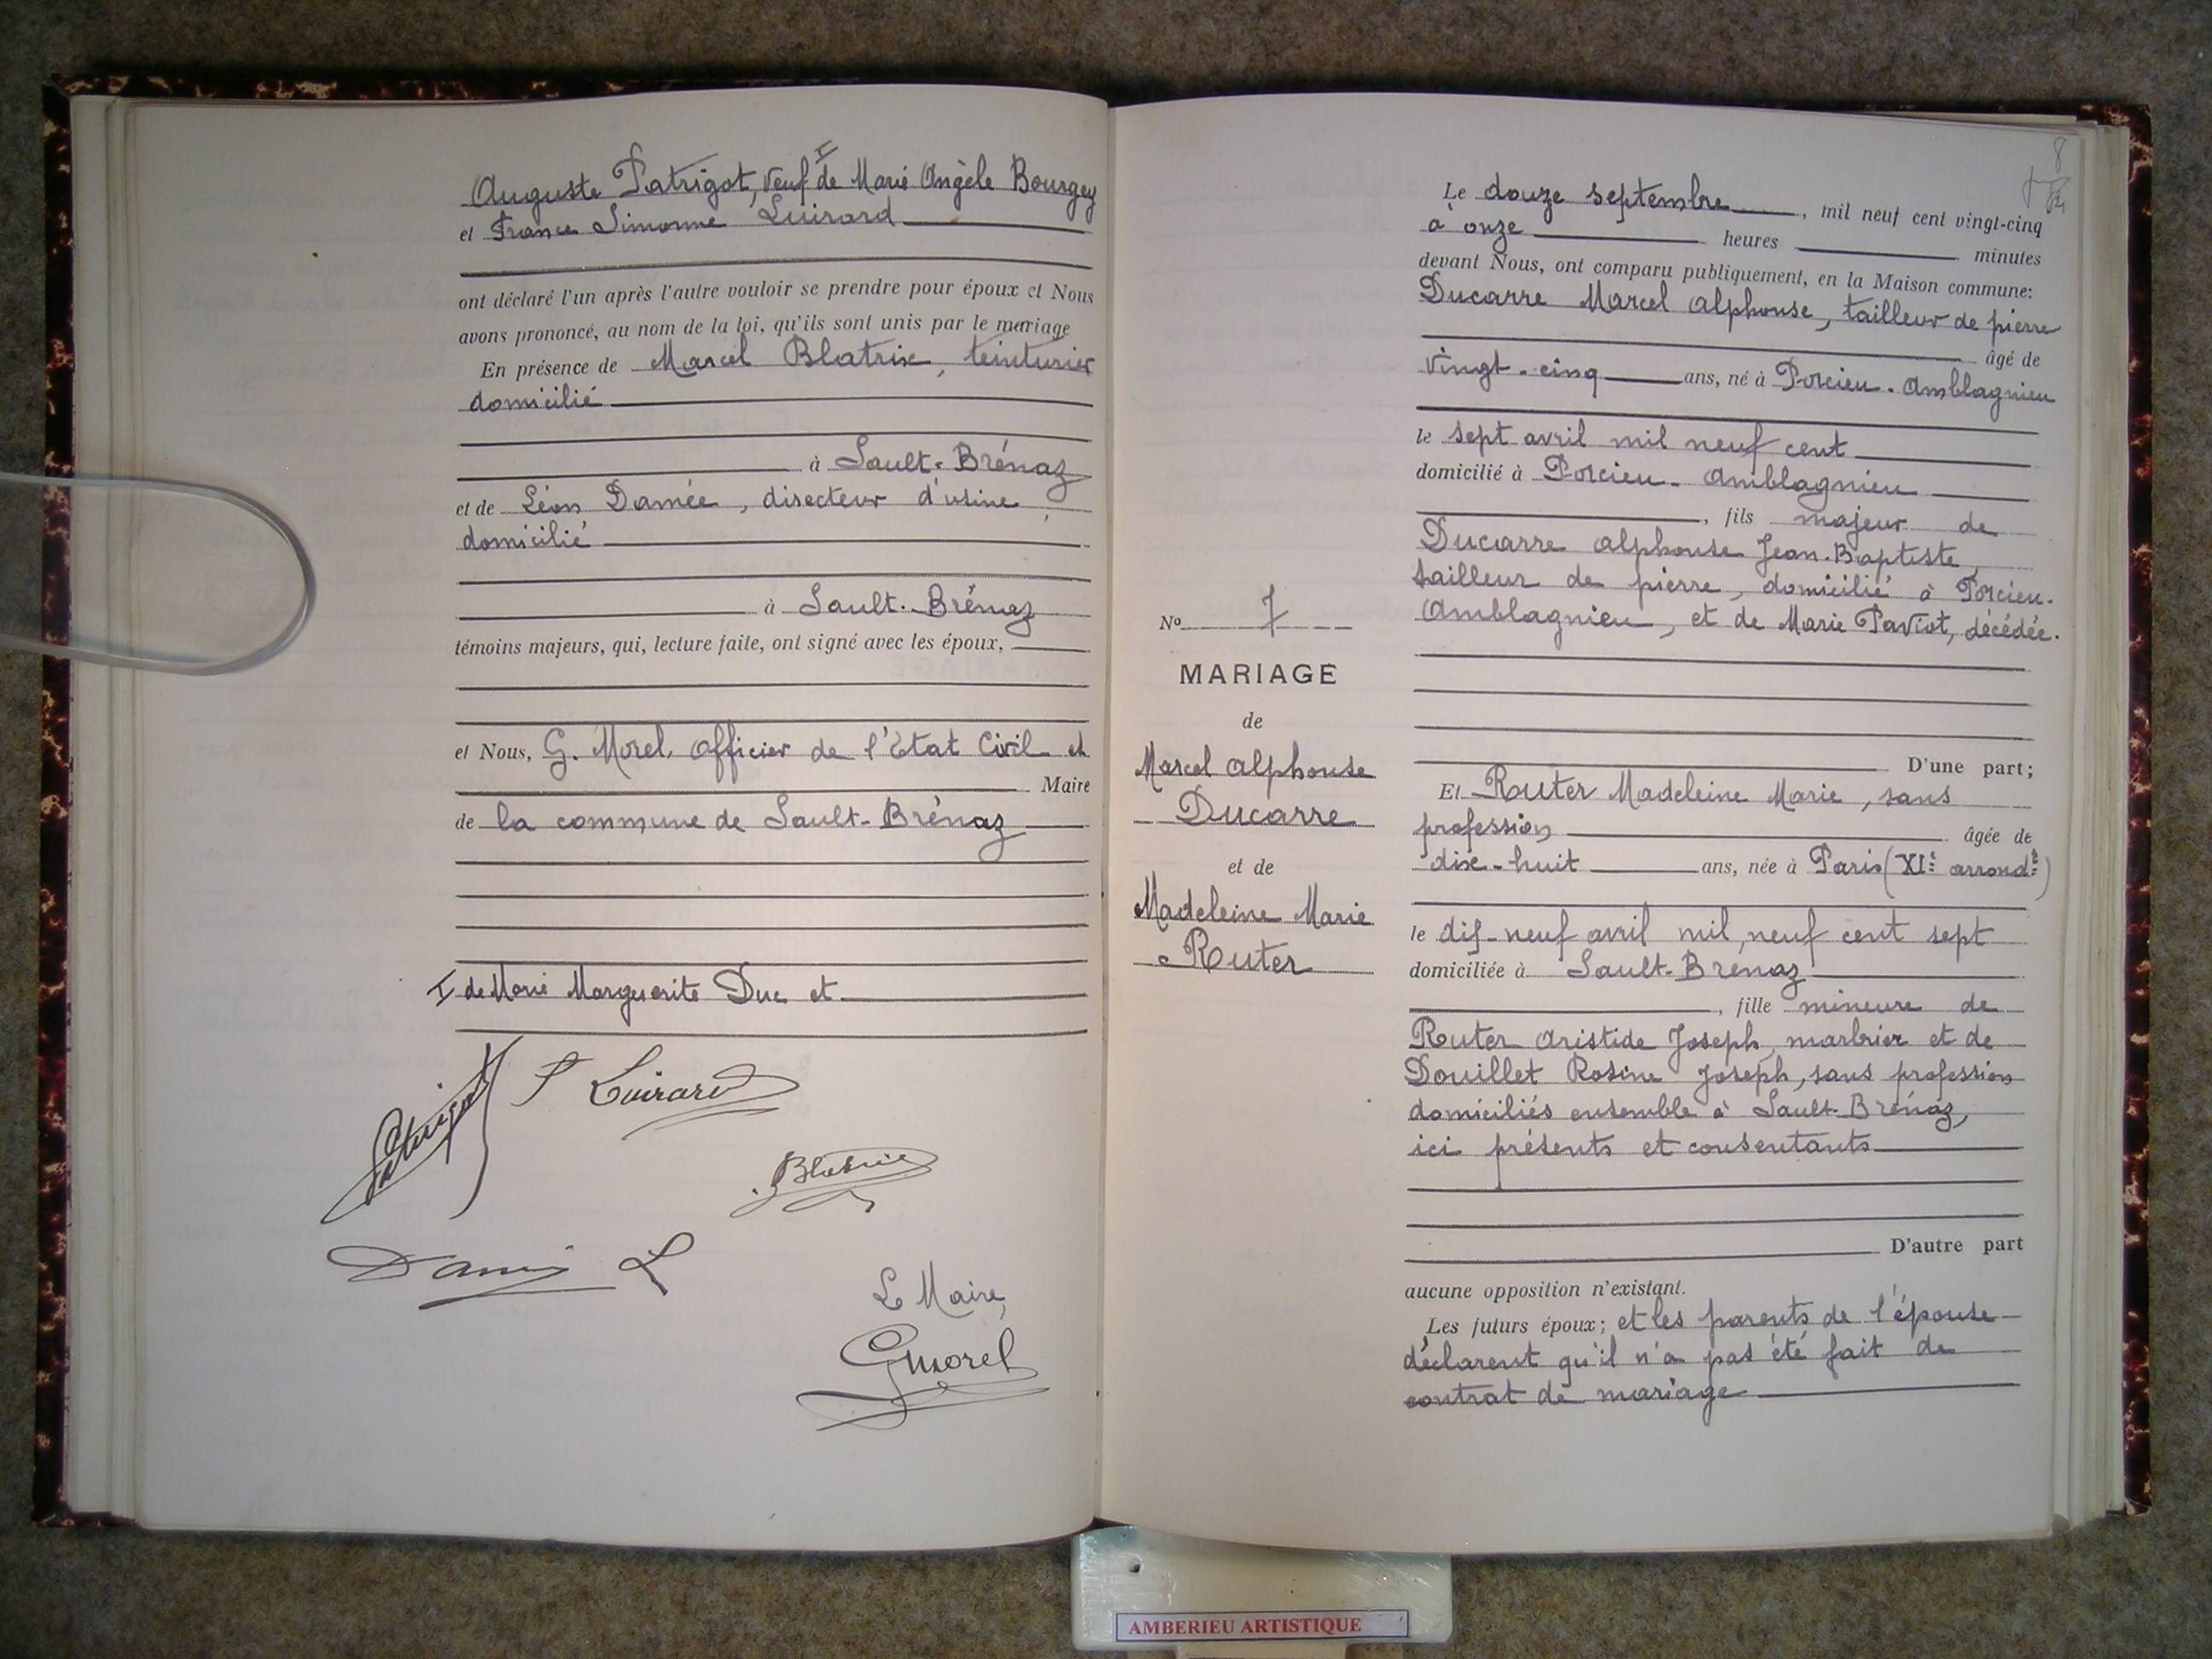 Auguste Patrigot, Veuf I de Marie Angèle Bourgey
et France Simonne Luirard
ont déclaré l'un après l'autre vouloir se prendre pour époux et Nous
avons prononcé, au nom de la loi, qu'ils sont unis par le mariage
En présence de Marcel Blatrix, teinturier
domicilié
à Sault-Brénaz
et de Léon Damée, directeur d'usine,
domicilié
à Sault-Brénaz
témoins majeurs, qui, lecture faite, ont signé avec les époux,
et Nous, G. Morel, Officier de l'Etat Civil et
Maire
de la commune de Sault-Brénaz
I de Marie Marguerite Duc et
Patrigot F Luirard
Blatrix
Damée L
Le Maire,
GMorel
8
Le douze septembre, mil neuf cent vingt-cinq
à onze heures minutes
devant Nous, ont comparu publiquement, en la Maison commune:
Ducarre Marcel Alphonse, tailleur de pierre
âgé de
vingt-cinq ans, né à Porcieu-Amblagnieu
le sept avril mil neuf cent
domicilié à Porcieu-Amblagnieu
, fils majeur de
Ducarre Alphonse Jean-Baptiste,
tailleur de pierre, domicilié à Porcieu-
Amblagnieu, et de Marie Paviot, décédée.
D'une part;
No 7
MARIAGE
de
Marcel Alphonse
Ducarre
et de
Madeleine Marie
Ruter
Et Ruter Madeleine Marie, sans
profession âgée de
dix-huit ans, née à Paris (XIe arrondt)
le dix-neuf avril mil neuf cent sept
domiciliée à Sault-Brénaz
, fille mineure de
Ruter Aristide Joseph, marbrier et de
Douillet Rosine Joseph, sans profession
domiciliés ensemble à Sault-Brénaz,
ici présents et consentants
D'autre part
aucune opposition n'existant.
Les futurs époux; et les parents de l'épouse
déclarent qu'il n'a pas été fait de
contrat de mariage
AMBERIEU ARTISTIQUE